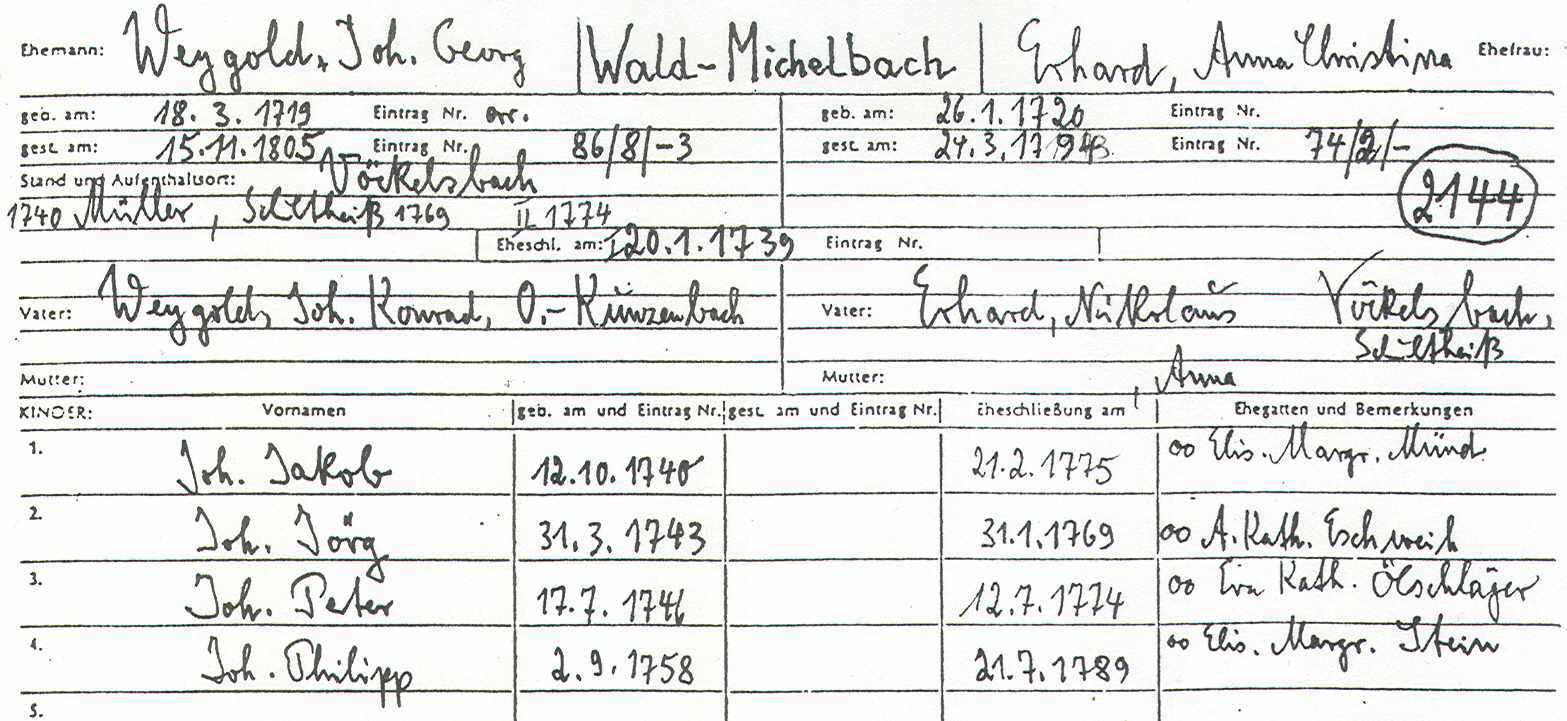 Ehemann: Weygold, Joh. Georg | Wald-Michelbach | Erhard, Anna Christina Ehefrau:
geb. am: 18. 3. 1719 Eintrag Nr. err. geb. am: 26.1.1720 Eintrag Nr.
gest. am: 15.11.1805 Eintrag Nr. 86/8/-3 gest. am: 24.3.179 Eintrag Nr. 74/2/-
Stand und Aufenthaltsort: Vöckelsbach
1740 Müller, Schultheiß 1769 II 1774 2144
Eheschl. am: I 20.1.1739 Eintrag Nr.
Vater: Weygold, Joh. Konrad, O.-Kunzenbach Vater: Erhard, Nikolaus Vöckelsbach,
Schultheiß
Mutter: Mutter: , Anna
KINDER: Vornamen geb. am und Eintrag Nr. gest. am und Eintrag Nr. Eheschließung am Ehegatten und Bemerkungen
1. Joh. Jakob 12.10.1740 21.2.1775 oo Elis. Margr. Münd
2. Joh. Jörg 31.3.1743 31.1.1769 oo A. Kath. Eschweih
3. Joh. Peter 17.7.1746 12.7.1774 oo Eva Kath. Ölschläger
4. Joh. Philipp 2.9.1758 21.7.1789 oo Elis. Margr. Stein
5.